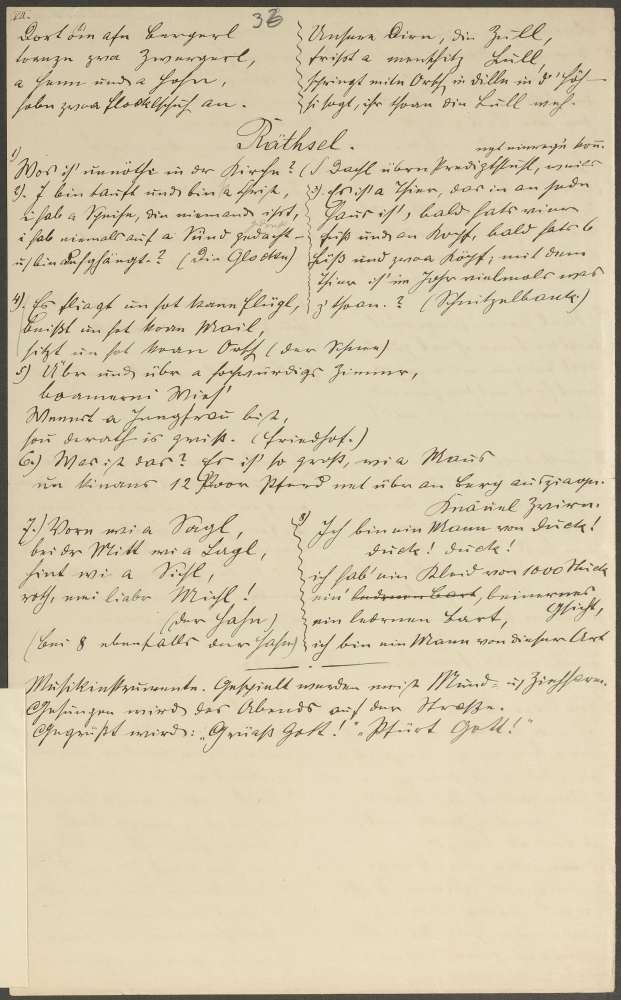 36
Dort óm afn Bergerl
tanzn zwa Zwergerl,
a Henn und a Hohn,
hobn zwoa Flecklschuh an.
Unsere Dirn, die Zull,
frisst a Lull,
springt mitn Orsch in Dilln in d' Höh
si sogt, ihr thoan die Lull weh.
Räthsel.
1)
Wos is' unnöthi in dr Kirchn? (S Dachl übern Predigtstuhl, weils
net einregn konn.
2). I bin tauft und bin a Christ,
i hab a Speise, die niemand isst,
i hab niemals auf a Sünd gedacht
u. bin aufghängt.? (Die Glocken)
3) Es is' a Thier, das in an jedn
Haus is', bald hats vier
Füß und an Kopf, bald hats 6
Füß und zwoa Köpf, mit dem
Thier is' im Johr vielmols was
z' thoan.? (Schnitzelbank)
4). Es fliagt un hot kane Flügl,
beißt un hot koan Mail,
sitzt un hot koan Orsch (der Schnee)
5) Übr und übr a hochwürdigs Zimmer,
boamerni Wies'
Wennst a Jungfrau bist,
derath is gwiß. (Friedhof.)
6.) Was ist das? Es is' so groß, wia Maus
un kinans 12 Poor Pferd net übr an Berg ausziagn.
Knäuel Zwirn.
7.) Vorn wi a Sagl,
bei der Mitt wi a Lagl,
hint wi a Sichl,
roth, mei liabr Michl!
(der Hahn)
(bei 8 ebenfalls der Hahn)
8) Ich bin ein Mann von duck!
duck! duck!
ich hab' ein Kleid von 1000 Stück
ein' ledernen Bart, beinernes
Gsicht,
ein ledernen Bart,
ich bin ein Mann von dieser Art
Musikinstrumente. Gespielt werden meist Mund- u. Ziehharm.
Gesungen wird des Abends auf der Straße.
Gegrüßt wird: „Grüaß Gott!" „Pfürt Gott!"